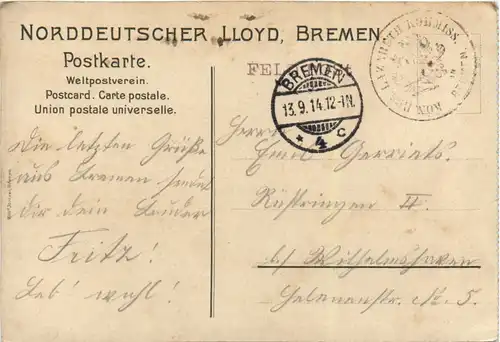 NORDDEUTSCHER LLOYD, BREMEN
Postkarte.
Weltpostverein.
Postcard. Carte postale.
Union postale universelle.
BREMEN
13.9.14.12-1N.
* 4 c
Die letzten Grüße
aus Bremen sendet
dir dein Bruder
Fritz!
Leb' wohl!
Herrn
Emil Gerriets.
Rüstringen II.
b/ Wilhelmshaven
Helenenstr. № 5.